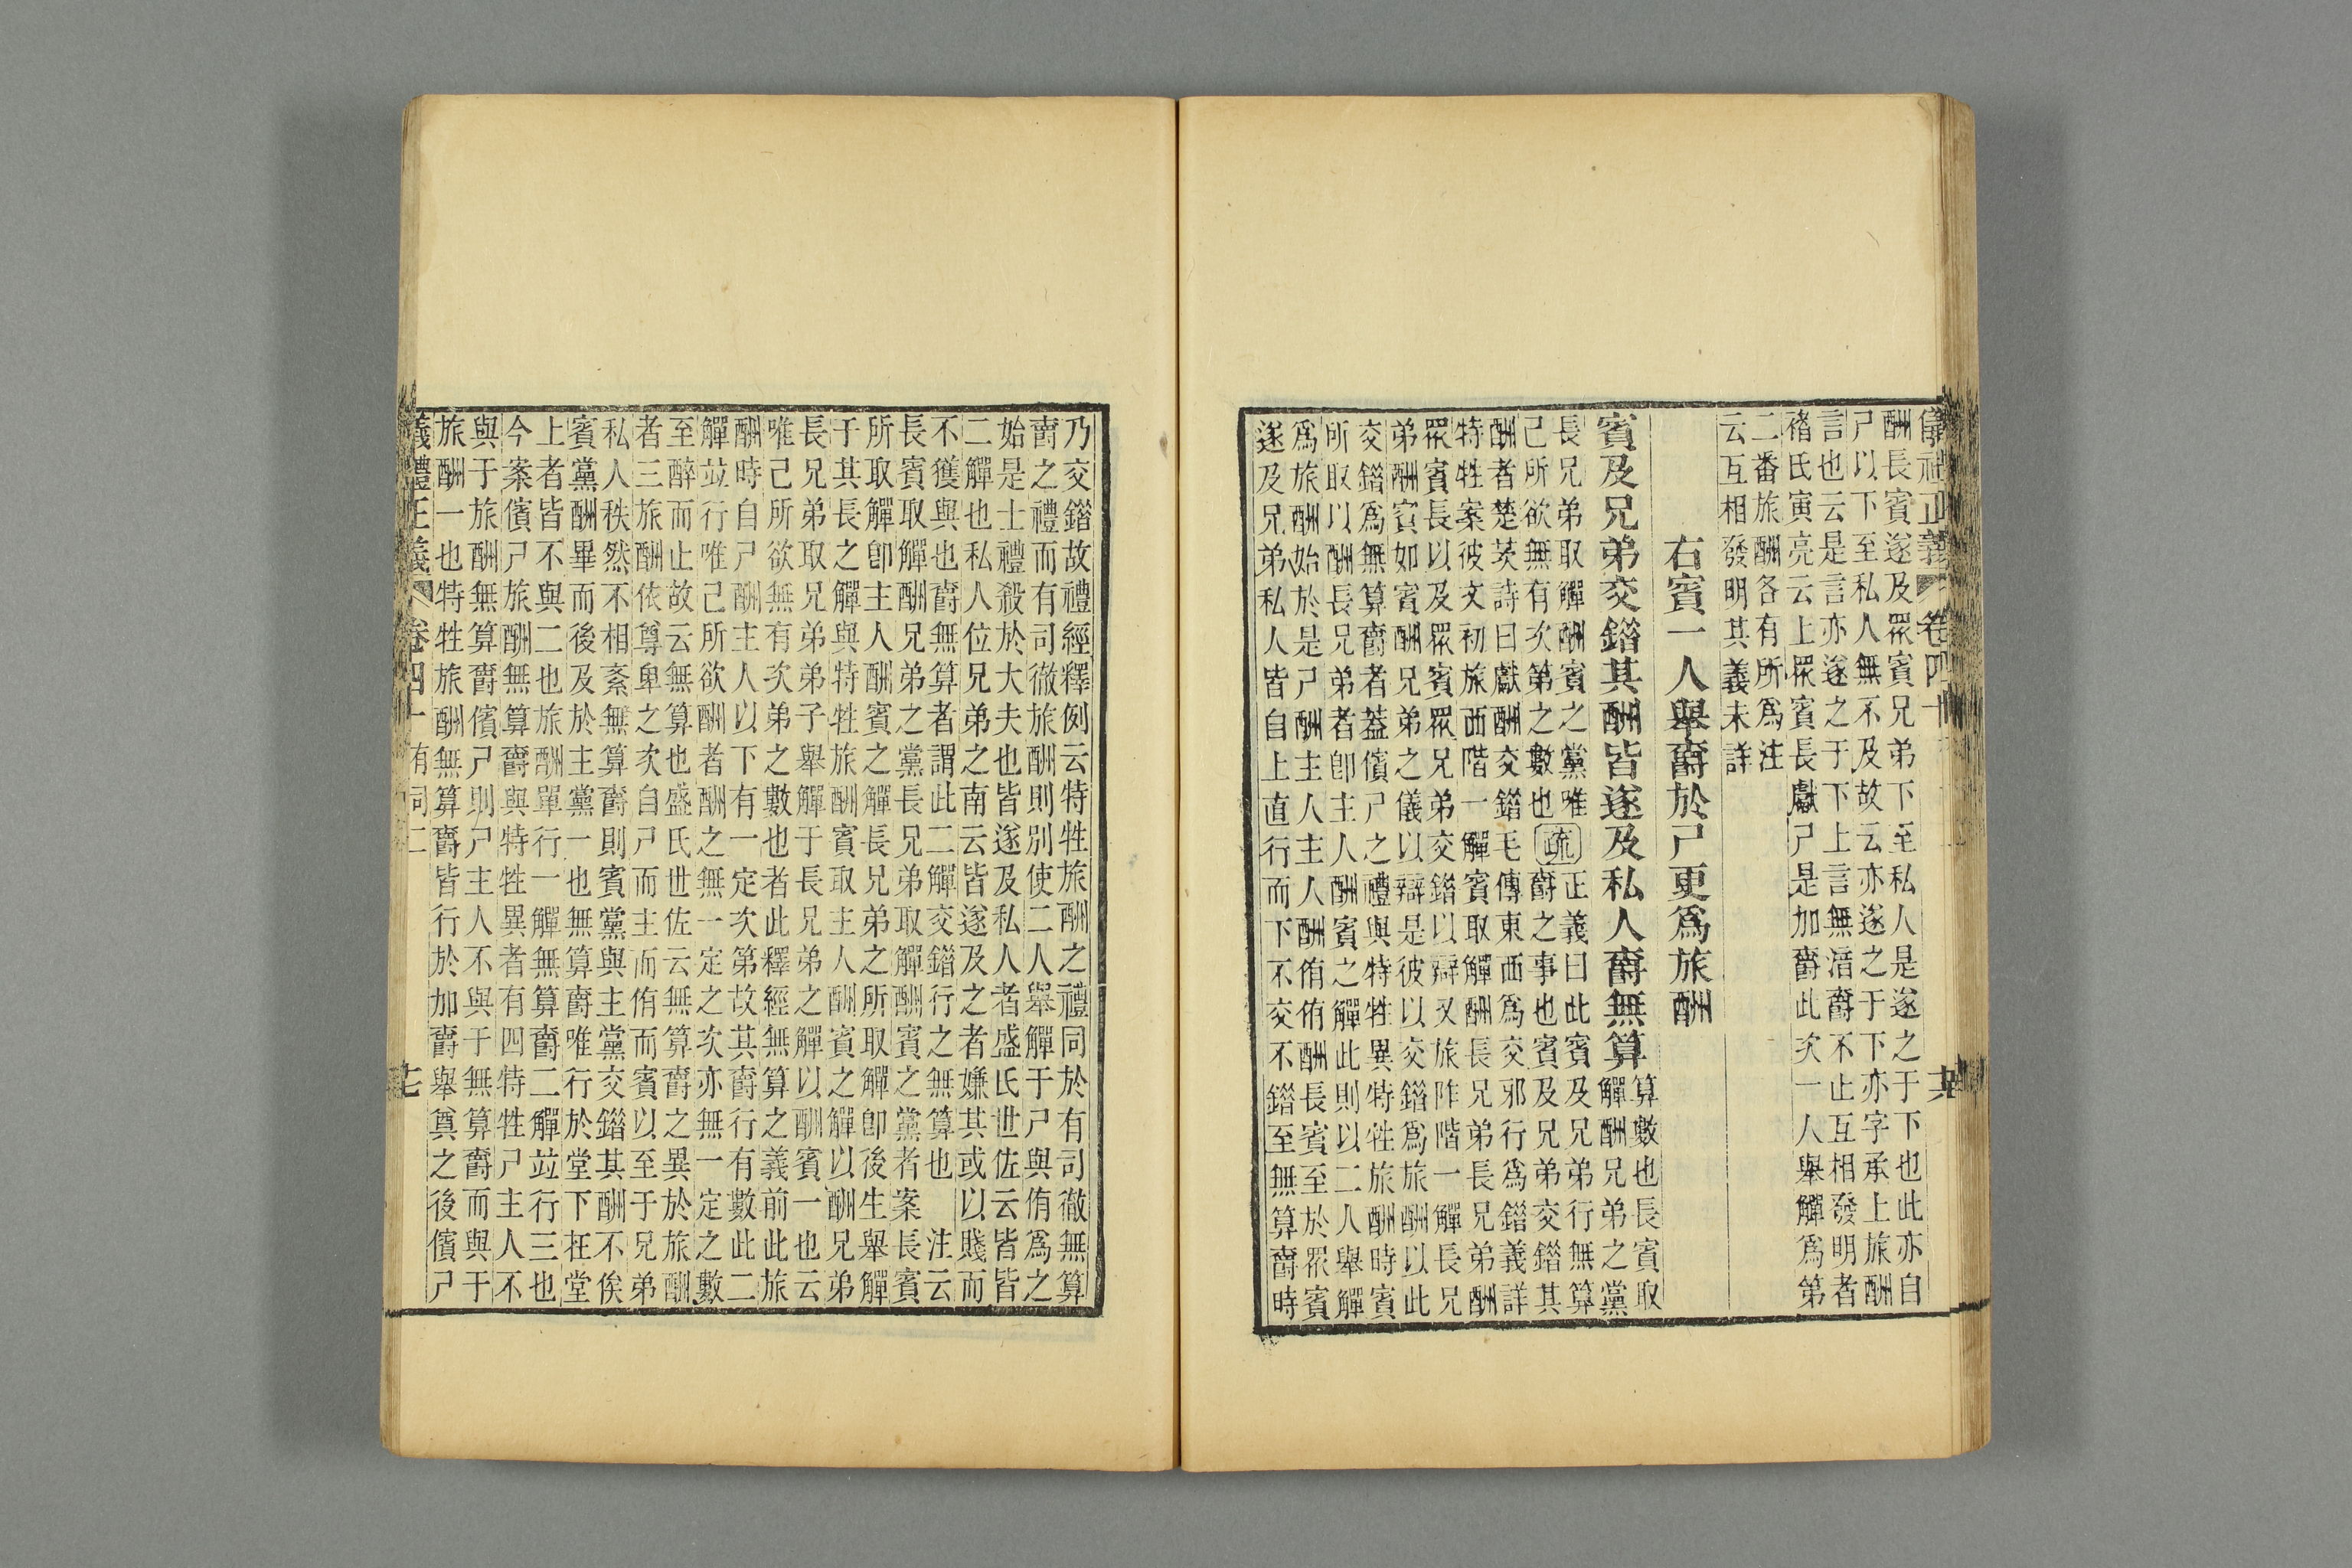 儀禮正義 卷四十 六
酬長賓遂及眾賓兄弟下至私人是遂之于下也此亦自
尸以下至私人無不及故云亦遂之于下亦字承上旅酬
言也云是言亦遂之于下上言無湇爵不止互相發明者
褚氏寅亮云上眾賓長獻尸是加爵此次一人舉觶爲第
二番旅酬各有所爲注
云互相發明其義未詳
右賓一人舉爵於尸更爲旅酬
賓及兄弟交錯其酬皆遂及私人爵無算
算數也長賓取
觶酬兄弟之黨
長兄弟取觶酬賓之黨唯
己所欲無有次第之數也
疏
正義曰此賓及兄弟行無算
爵之事也賓及兄弟交錯其
酬者楚茨詩曰獻酬交錯毛傳東西爲交邪行爲錯義詳
特牲案彼文初旅西階一觶賓取觶酬長兄弟長兄弟酬
眾賓長以及眾賓眾兄弟交錯以辯又旅阼階一觶長兄
弟酬賓如賓酬兄弟之儀以辯是彼以交錯爲旅酬以此
交錯爲無算爵者葢儐尸之禮與特牲異特牲旅酬時賓
所取以酬長兄弟者卽主人酬賓之觶此則以二人舉觶
爲旅酬始於是尸酬主人主人酬侑侑酬長賓至於眾賓
遂及兄弟私人皆自上直行而下不交不錯至無算爵時
乃交錯故禮經釋例云特牲旅酬之禮同於有司徹無算
爵之禮而有司徹旅酬則別使二人舉觶于尸與侑爲之
始是士禮殺於大夫也皆遂及私人者盛氏世佐云皆皆
二觶也私人位兄弟之南云皆遂及之者嫌其或以賤而
不獲與也爵無算者謂此二觶交錯行之無算也 注云
長賓取觶酬兄弟之黨長兄弟取觶酬賓之黨者案長賓
所取觶卽主人酬賓之觶長兄弟之所取觶卽後生舉觶
于其長之觶與特牲旅酬賓取主人酬賓之觶以酬兄弟
長兄弟取兄弟弟子舉觶于長兄弟之觶以酬賓一也云
唯己所欲無有次弟之數也者此釋經無算之義前此旅
酬時自尸酬主人以下有一定次第故其爵行有數此二
觶竝行唯己所欲酬者酬之無一定之次亦無一定之數
至醉而止故云無算也盛氏世佐云無算爵之異於旅酬
者三旅酬依尊卑之次自尸而主而侑而賓以至于兄弟
私人秩然不相紊無算爵則賓黨與主黨交錯其酬不俟
賓黨酬畢而後及於主黨一也無算爵唯行於堂下在堂
上者皆不與二也旅酬單行一觶無算爵二觶竝行三也
今案儐尸旅酬無算爵與特牲異者有四特牲尸主人不
與于旅酬無算爵儐尸則尸主人不與于無算爵而與于
旅酬一也特牲旅酬無算爵皆行於加爵舉奠之後儐尸
儀禮正義 卷四十 有司二 七